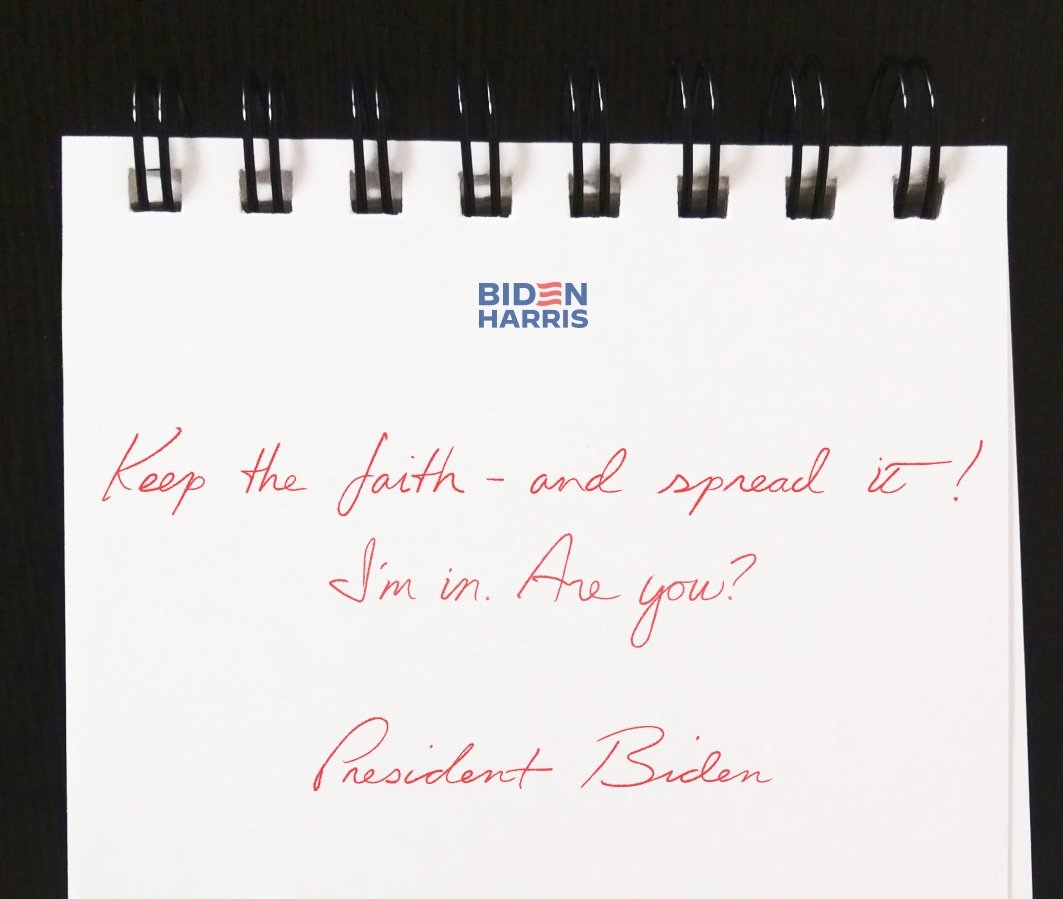 BIDEN
HARRIS
Keep the faith - and spread it!
I'm in. Are you?
President Biden